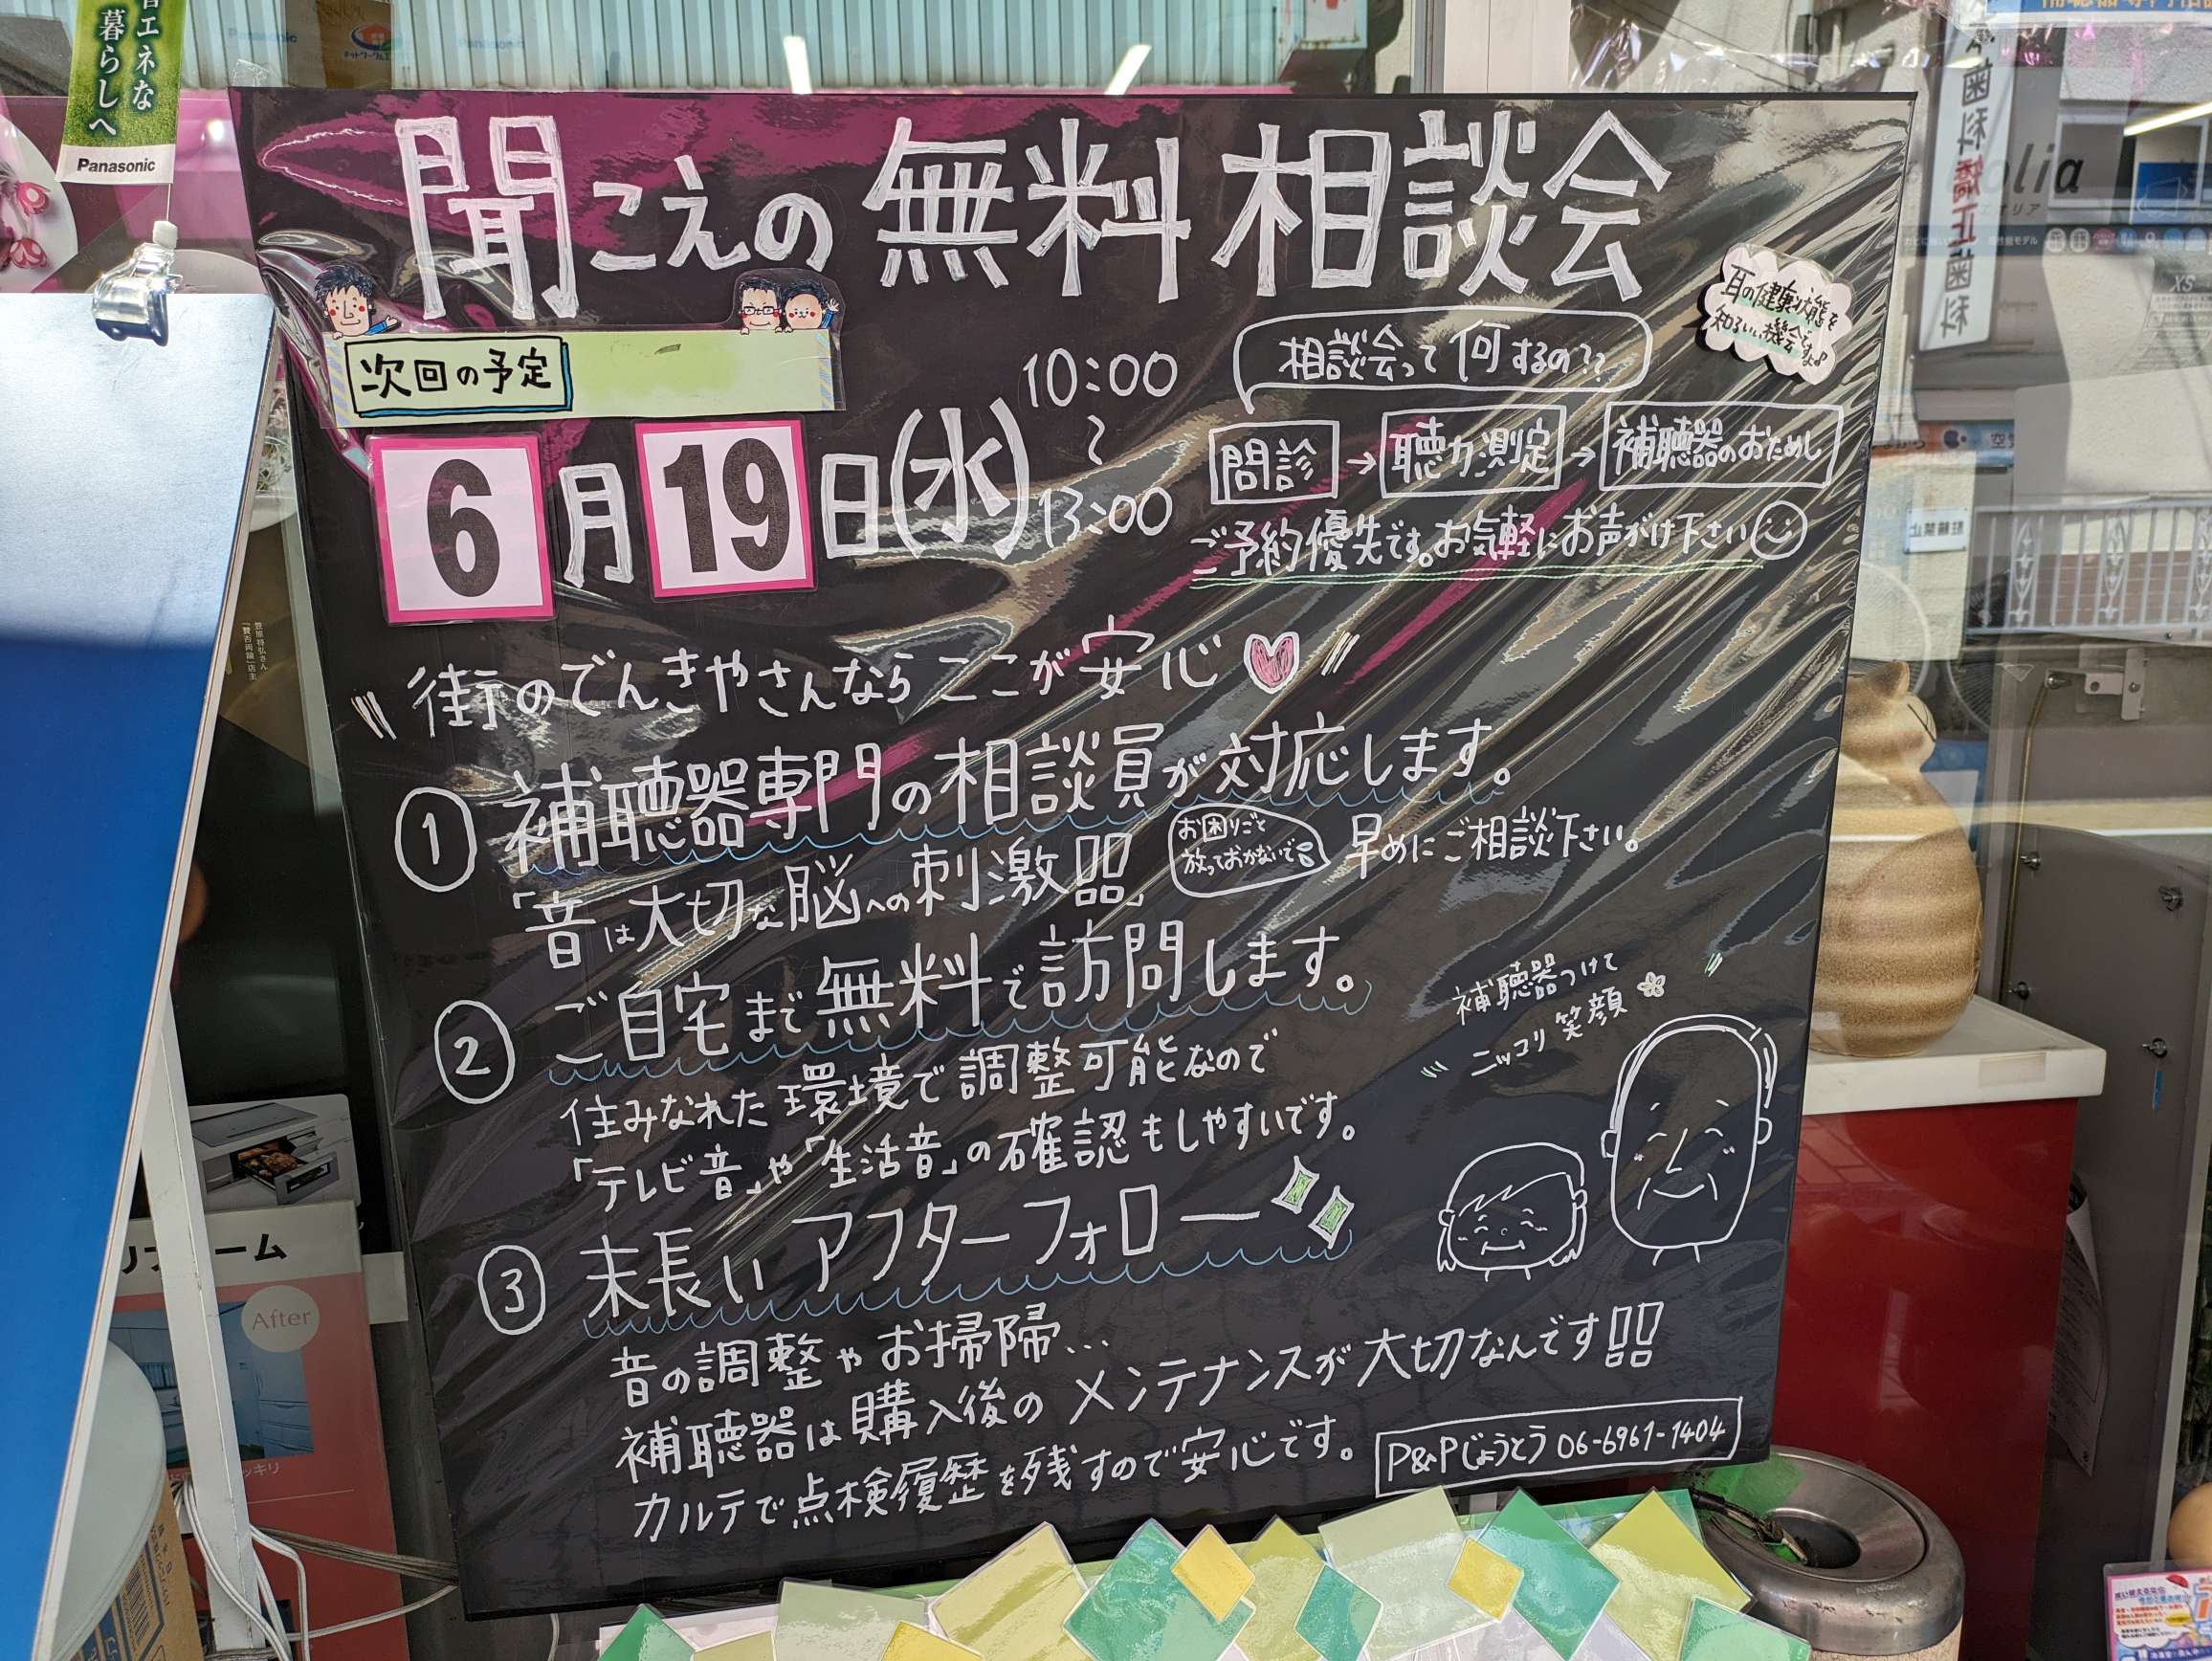 暮らしへ
Panasonic
聞こえの無料相談会
次回の予定
6月19日(水)
10:00
〜
13:00
耳の健康状態を
知るいい機会ですよ♪
相談会って何するの??
問診→聴力測定→補聴器のおためし
ご予約優先です。お気軽にお声がけ下さい
街のでんきやさんならここが安心
① 補聴器専門の相談員が対応します。
「音は大切な脳への刺激!!」
お困りごと
放っておかないで
早めにご相談下さい。
② ご自宅まで無料で訪問します。
住みなれた環境で調整可能なので
「テレビ音」や「生活音」の確認もしやすいです。
補聴器つけて
ニッコリ笑顔
③ 末長いアフターフォロー
音の調整やお掃除...
補聴器は購入後のメンテナンスが大切なんです!!
カルテで点検履歴を残すので安心です。
P&Pじょうとう 06-6961-1404
After
歯科矯正歯科